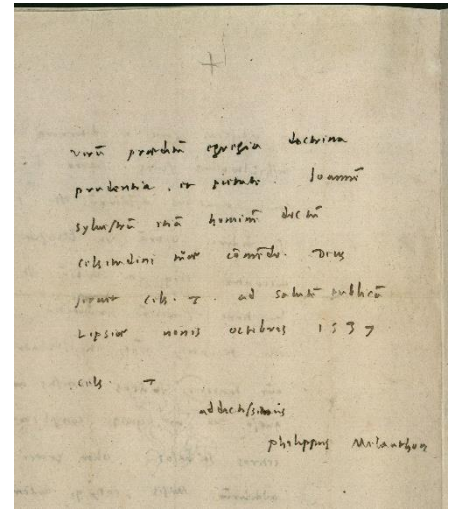 virū præditū egregia doctrina
prudentia, et pietate. Joannē
Sylvestrū etiā hominē doctū
celsitudini tuæ cōmēdo. Deus
servet cels. T. ad salutē publicā
Lipsiæ nonis octobris 1537
cels. T
addictissimus
philippus Melanthon